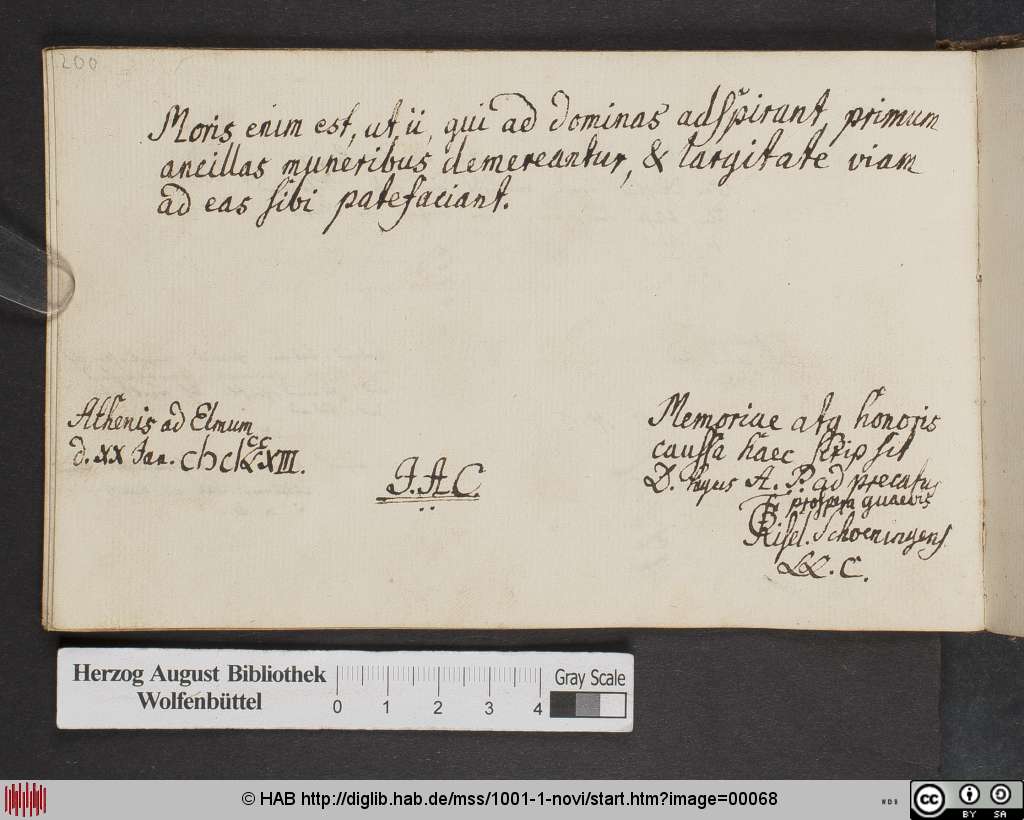 200
Moris enim est, ut ii, qui ad dominas adspirant, primum
ancillas muneribus demereantur, & largitate viam
ad eas sibi patefaciant.
Athenis ad Elmum
d. XX Jan.
J.A.C.
Memoriae atq honoris
caussa haec scripsit
D. A. P. ad precatus
prospera quaevis
Schoeningens
LL. C.
Herzog August Bibliothek
Wolfenbüttel
0 1 2 3 4
Gray Scale
© HAB http://diglib.hab.de/mss/1001-1-novi/start.htm?image=00068
cc BY SA